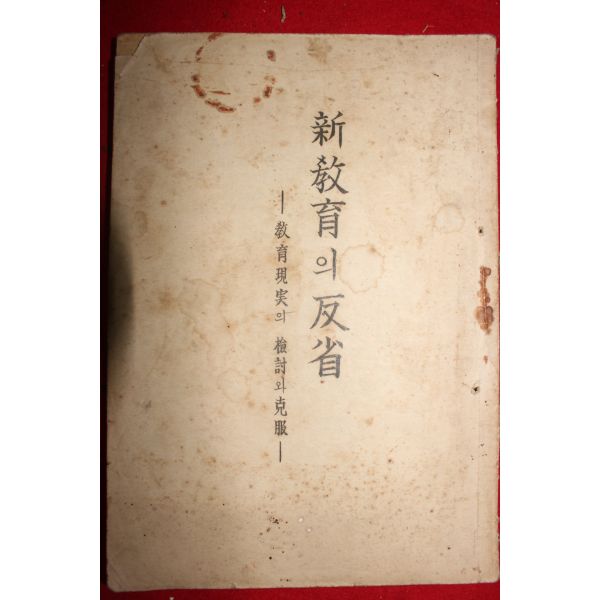 新敎育의反省
—敎育現実의 檢討와克服—